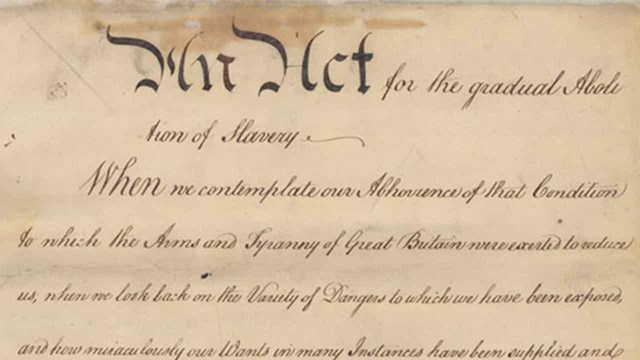 An Act for the gradual Aboli
tion of Slavery
When we contemplate our Abhorrence of that Condition
to which the Arms and Tyranny of Great Britain were exerted to reduce
us, when we look back on the Variety of Dangers to which we have been exposed,
and how miraculously our Wants in many Instances have been supplied and